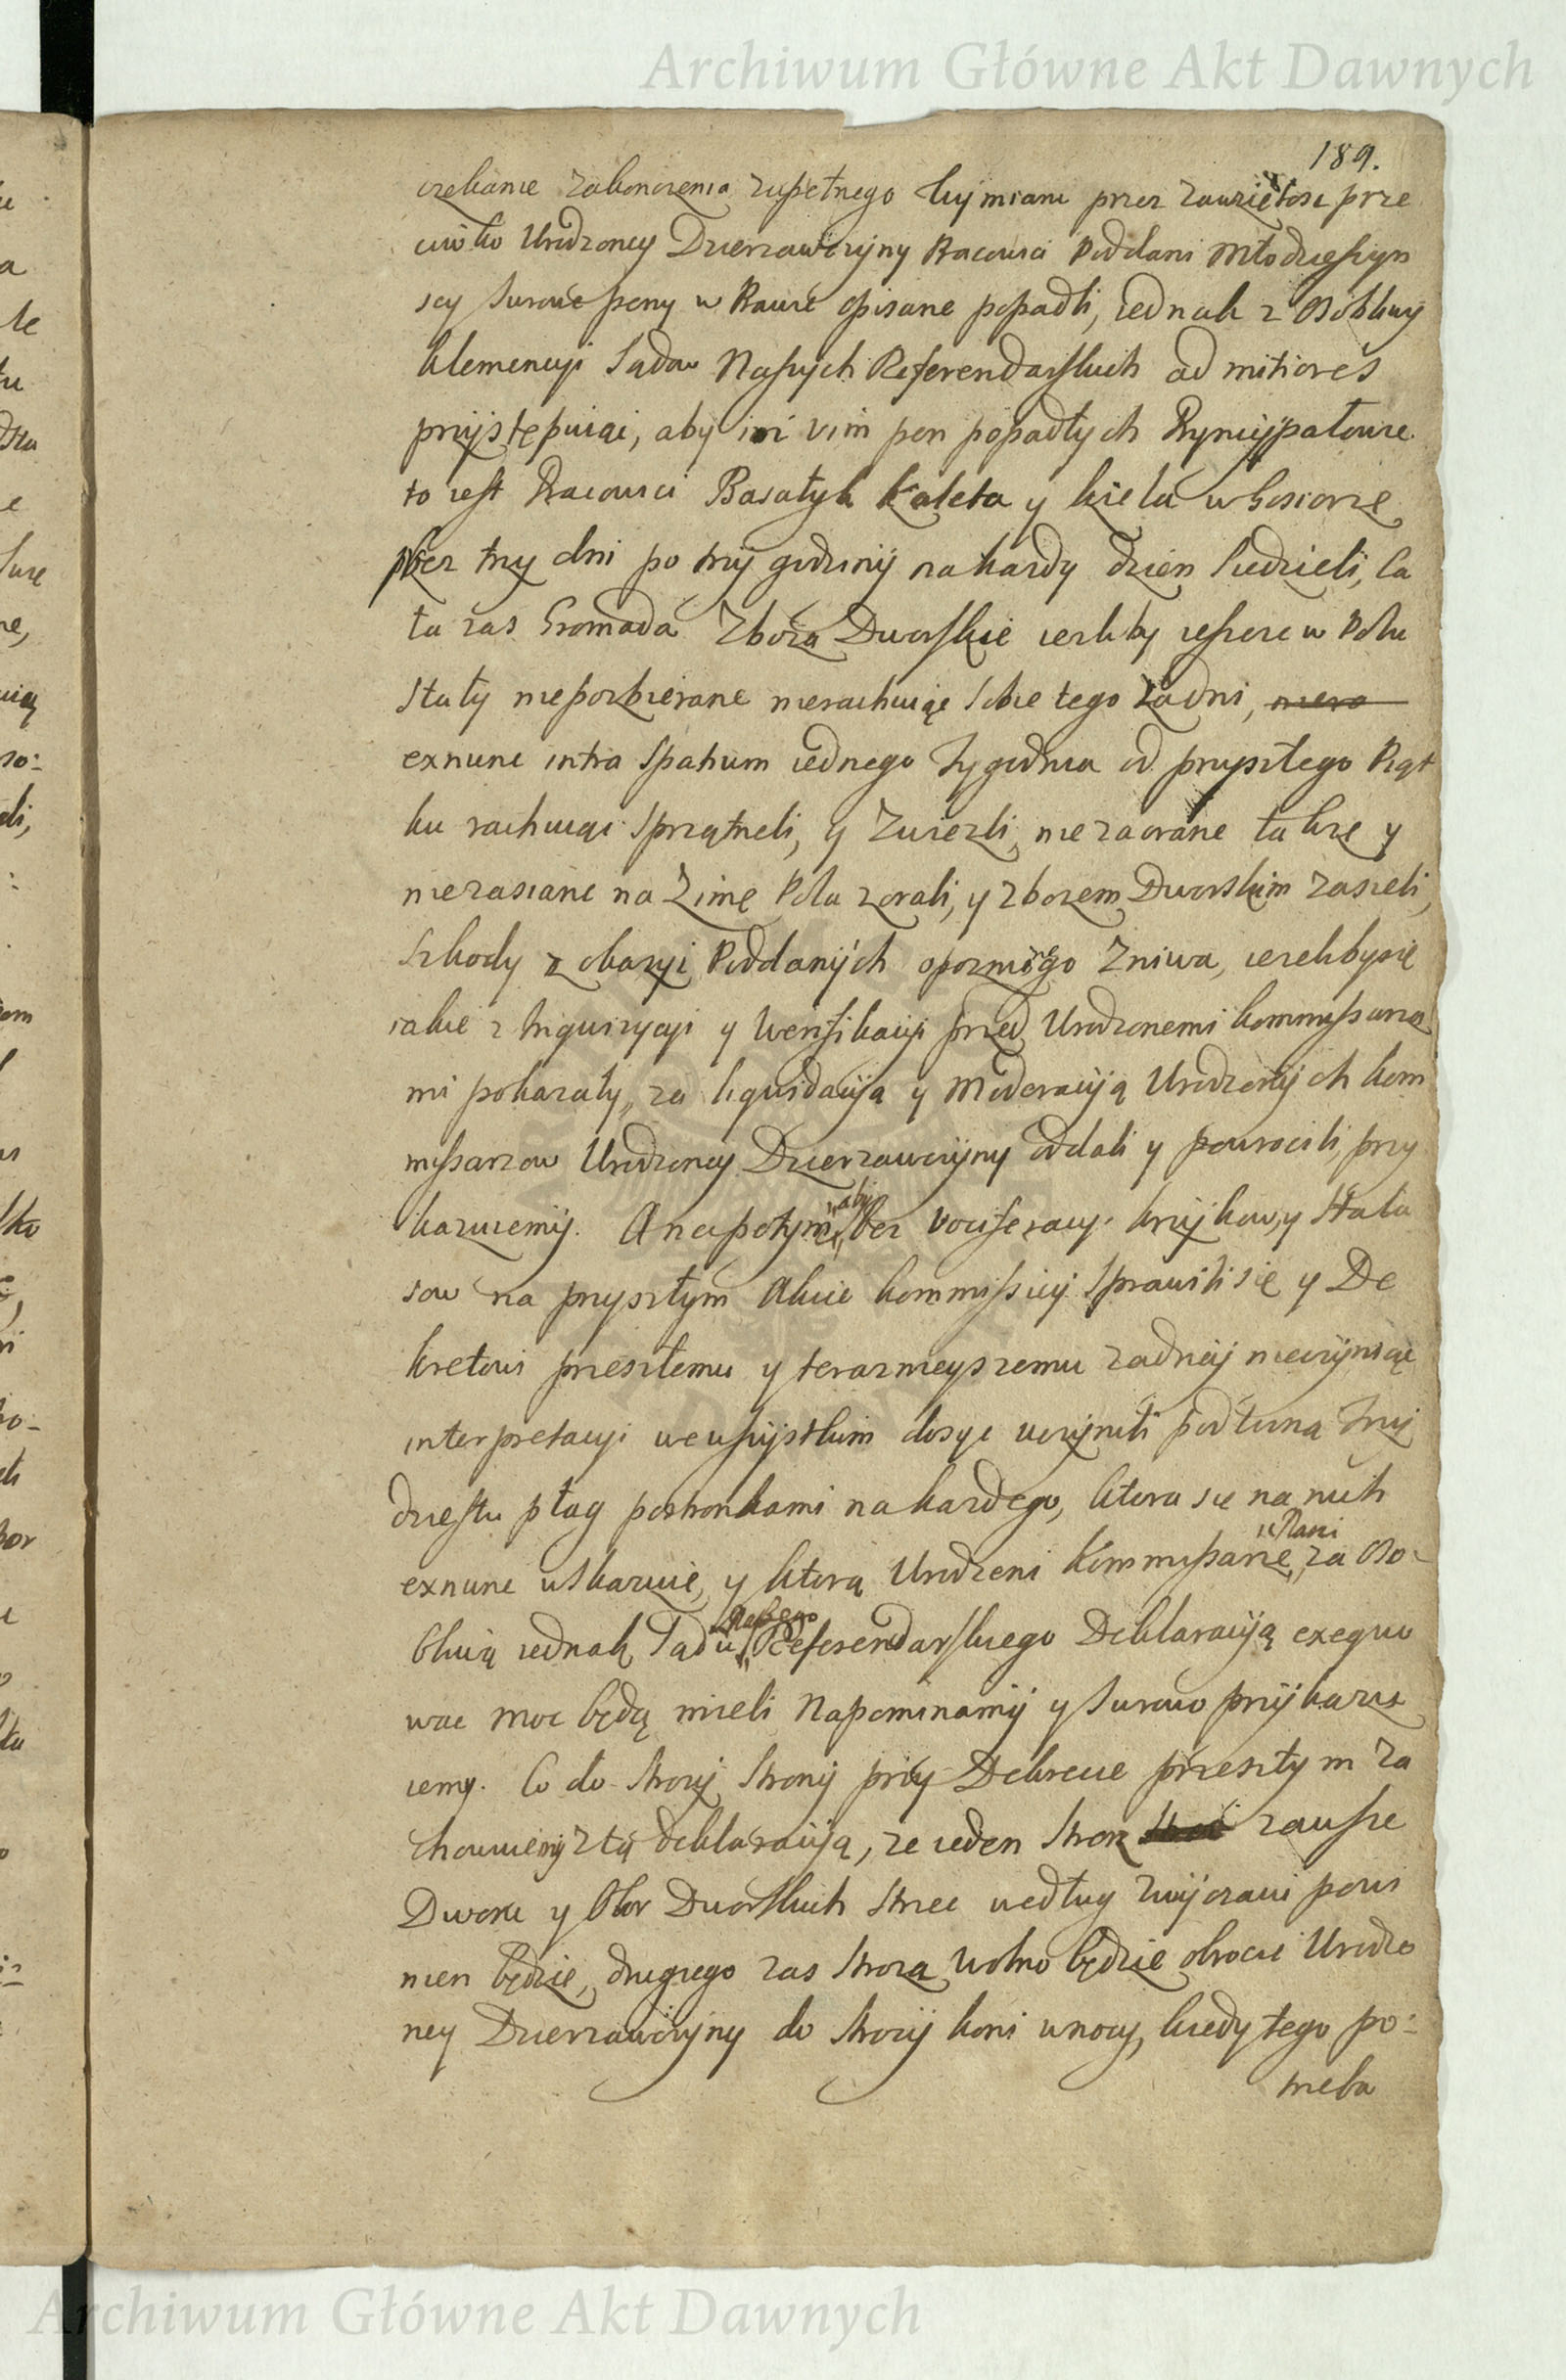 Archiwum Główne Akt Dawnych
189.
czekanie zakonczenia zupełnego tey miani przez zawziętosc prze
ciwko Urodzoney Dzierzawczyny Racowici Poddani Młodzieszyn
scy surowe peny w Rawie opisane popadli, iednak z osobliwy
klemencyi Sądow Naszych Referendarskich ad mitiores
przystępuiąc, aby in vim pen popadłych Pryncypałowie
to iest Racowici Basałyk Kaleta y Kiela w kosciorze
przez trzy dni po trzy godziny na kazdy dzien siedzieli, ca
ła zas Gromada Zboza Dworskie iezliby ieszcze w Polu
stały niepozbierane nierachuiąc sobie tego za dni, niera
exnunc intra spatium iednego tygodnia od przyszłego Piąt
ku rachuiąc sprzątneli, y zwiezli, niezaorane takze y
niezasiane na Zimę Pola zorali, y zbozem Dworskim zasieli,
szkody z okazyi Poddanych opoznionego Zniwa, iezeliby się
iakie z Inquizycyi y Weryfikacyi przed Urodzonemi Kommissarza
mi pokazały, za liquidacyą y Moderacyą Urodzonych Kom
missarzow Urodzoney Dzierzawczyny oddali y powrocili, przy
kazuiemy. A napotym aby bez vociferacyi krzykow, y hała
sow na przyszłym Akcie Kommissyi sprawili się y De
kretowi przeszłemu y teraznieyszemu zadney nieczyniąc
interpretacyi we wszystkim dosyc uczynili pod winą trzy
dziestu plag postronkami na kazdego, ktora się na nich
exnunc wskazuie, y ktorą Urodzeni Kommissarze, za oso
bliwą iednak Sądu Naszego Referendarskiego Deklaracyą exequo
wac moc będą mieli Napominamy y surowo przykazu
iemy. Co do strozy strony przy Dekrecie przeszłym za
chowuiemy z tą deklaracyą, ze ieden stroz zawsze
Dworu y Obor Dworskich strzec według zwyczaiu powi
nien będzie, drugiego zas stroza wolno będzie obrocic Urodzo
ney Dzierzawczyny do strozy koni w nocy, kiedy tego po:
trzeba
Archiwum Główne Akt Dawnych